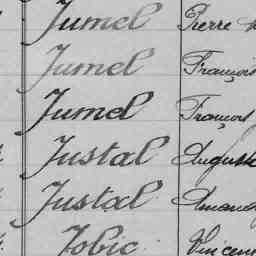 Jumel Pierre
Jumel François
Jumel François
Justal Auguste
Justal Amand
Jobic Vincent